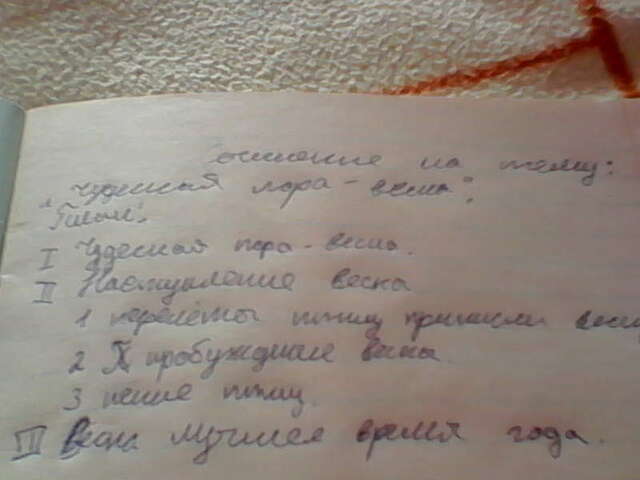 Сочинение на тему:
"Чудесная пора - весна".
План:
I Чудесная пора - весна.
II Наступление весна
1 перелёты птиц
2 пробуждение весна
3 пение птиц.
III Весна лучшее время года.